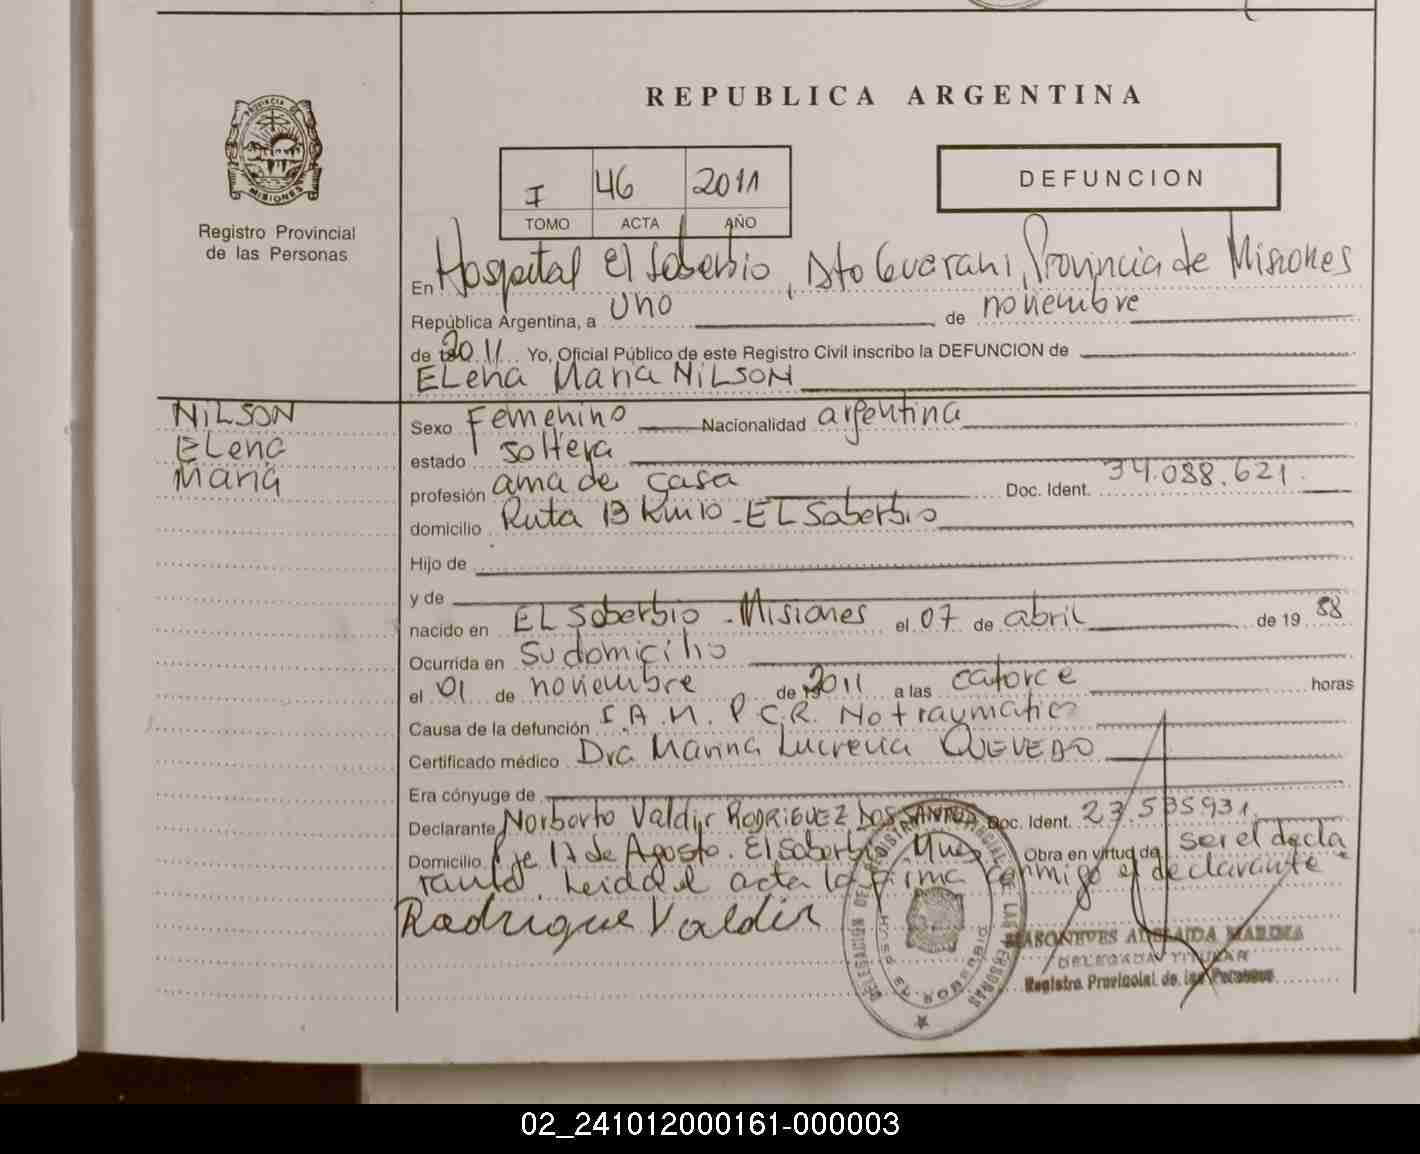 REPUBLICA ARGENTINA
PROVINCIA DE
MISIONES
Registro Provincial
de las Personas
I 46 2011
TOMO ACTA AÑO
DEFUNCION
En Hospital El Soberbio, Dto Guarani, Provincia de Misiones
República Argentina, a uno de noviembre
de 2011 Yo, Oficial Público de este Registro Civil inscribo la DEFUNCION de
ELena Maria NiLSON
NiLSON
ELena
Maria
Sexo Femenino Nacionalidad argentina
estado soltera
profesión ama de casa Doc. Ident. 34.088.621.
domicilio Ruta 13 Km 10 - EL Soberbio
Hijo de
y de
nacido en EL Soberbio - Misiones el 07 de abril de 19 88
Ocurrida en Su domicilio
el 01 de noviembre de 2011 a las catorce horas
Causa de la defunción I.A.M. P.C.R. No traumatico
Certificado médico Dra Marina Lucrecia QUEVEDO
Era cónyuge de
Declarante Norberto Valdir RODRIGUEZ DOS SANTOS Doc. Ident. 23.535931
Domicilio Pje 17 de Agosto. El Soberbio, Mnes Obra en virtud de ser el decla
rante. Leida el acta la firma conmigo el declarante
Rodrigue Valdir
DELEGACION DEL REGISTRO PROVINCIAL DE LAS PERSONAS
MASONEVES ADELAIDA MARINA
DELEGADA TITULAR
Registro Provincial de las Personas
02_241012000161-000003